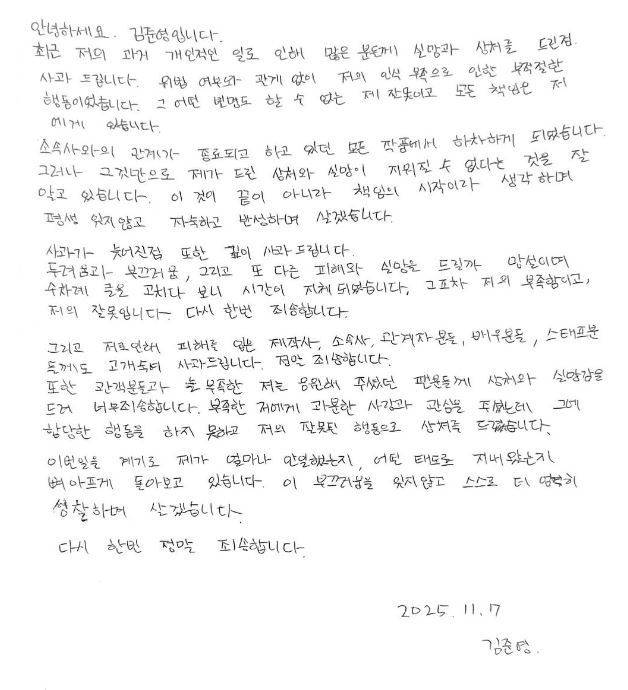 안녕하세요. 김준영입니다.
최근 저의 과거 개인적인 일로 인해 많은 분들께 실망과 상처를 드린점
사과 드립니다. 위법 여부와 관계 없이 저의 인식 부족으로 인한 부적절한
행동이었습니다. 그 어떤 변명도 할 수 없는 제 잘못이고 모든 책임은 저
에게 있습니다.
소속사와의 관계가 종료되고 하고 있던 모든 작품에서 하차하게 되었습니다.
그러나 그것만으로 제가 드린 상처와 실망이 지워질 수 없다는 것을 잘
알고 있습니다. 이 것이 끝이 아니라 책임의 시작이라 생각하며
평생 잊지않고 자숙하고 반성하며 살겠습니다.
사과가 늦어진점 또한 깊이 사과드립니다.
두려움과 부끄러움, 그리고 또 다른 피해와 실망을 드릴까 망설이며
수차례 글을 고치다 보니 시간이 지체되었습니다. 그조차 저의 부족함이고,
저의 잘못입니다. 다시 한번 죄송합니다.
그리고 저로인해 피해를 입은 제작사, 소속사, 관계자분들, 배우분들, 스태프분
들께도 고개숙여 사과드립니다. 정말 죄송합니다.
또한 관객분들과 늘 부족한 저를 응원해 주셨던 팬분들께 상처와 실망감을
드려 너무죄송합니다. 부족한 저에게 과분한 사랑과 관심을 주셨는데 그에
합당한 행동을 하지 못하고 저의 잘못된 행동으로 상처를 드렸습니다.
이번일을 계기로 제가 얼마나 안일했는지, 어떤 태도로 지내왔는지
뼈아프게 돌아보고 있습니다. 이 부끄러움을 잊지않고 스스로 더 엄격히
성찰하며 살겠습니다.
다시 한번 정말 죄송합니다.
2025.11.17
김준영.